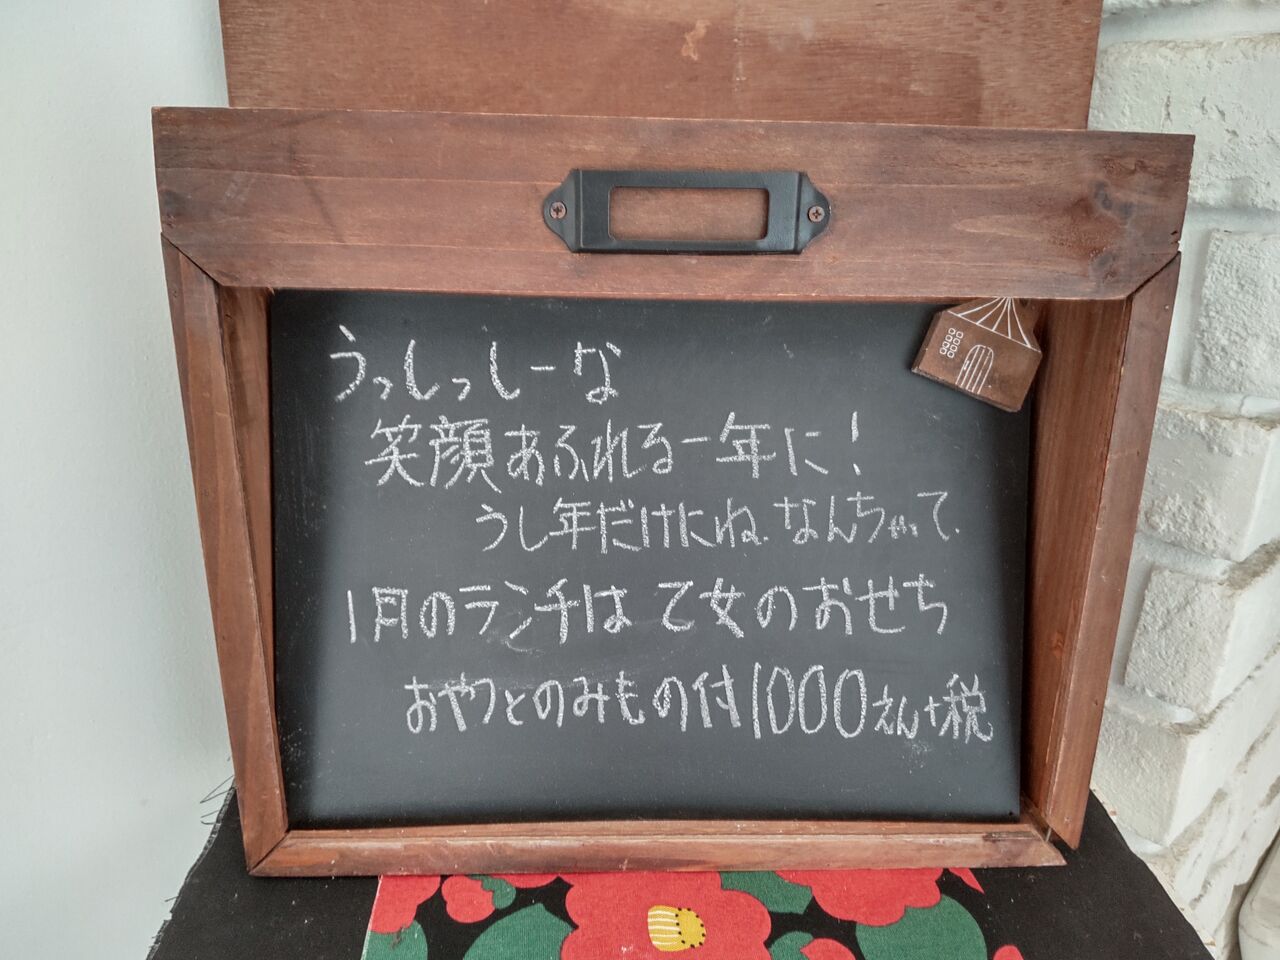 うっしっしーな
笑顔あふれる一年に!
うし年だけにね.なんちゃって.
1月のランチは乙女のおせち
おやつとのみもの付1000えん+税